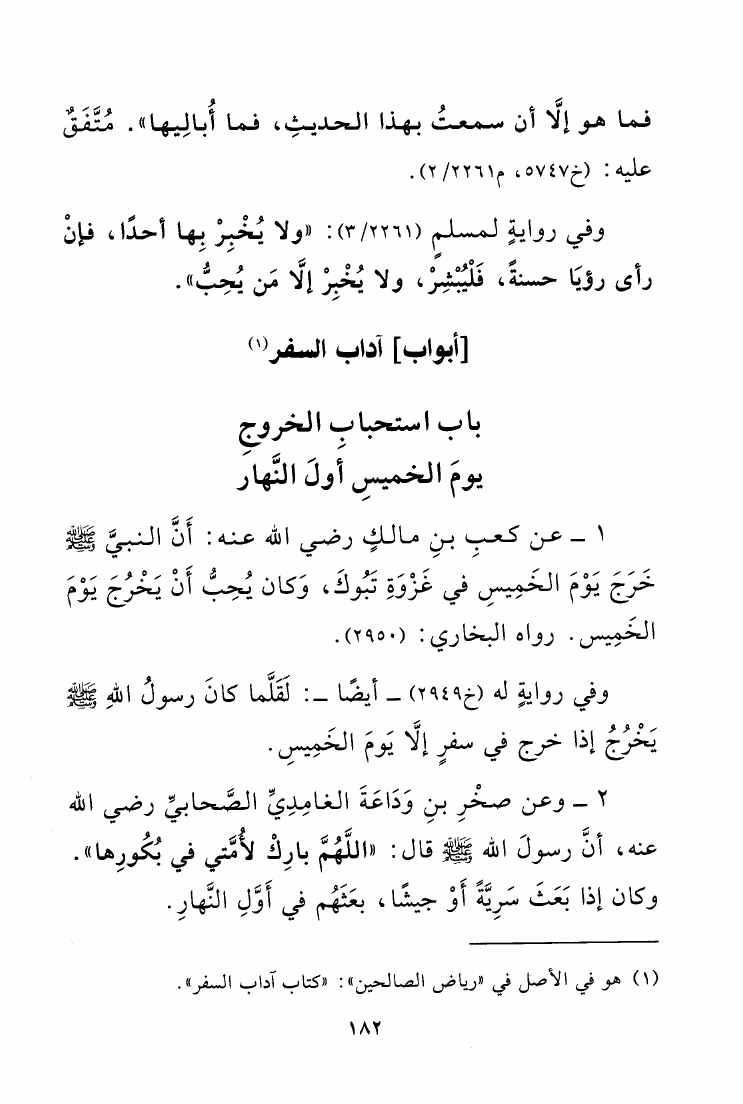 فما هو إلَّا أن سمعتُ بهذا الحديثِ، فما أُبالِيها». مُتَّفَقٌ
عليه: (خ٥٧٤٧، م٢/٢٢٦١).
وفي روايةٍ لمسلمٍ (٣/٢٢٦١): «ولا يُخْبِرْ بِها أحدًا، فإنْ
رأى رؤيَا حسنةً، فَلْيُبْشِرْ، ولا يُخْبِرْ إلَّا مَن يُحِبُّ».
[أبواب] آداب السفر(١)
باب استحبابِ الخروجِ
يومَ الخميسِ أولَ النَّهار
١ ـ عن كعبِ بنِ مالكٍ رضي الله عنه: أنَّ النبيَّ ﷺ
خَرَجَ يَوْمَ الخَمِيسِ في غَزْوَةِ تَبُوكَ، وَكان يُحِبُّ أنْ يَخْرُجَ يَوْمَ
الخَمِيس. رواه البخاري: (٢٩٥٠).
وفي روايةٍ له (خ٢٩٤٩) ـ أيضًا ـ: لَقَلَّما كانَ رسولُ اللهِ ﷺ
يَخْرُجُ إذا خرج في سفرٍ إلَّا يَومَ الخَمِيسِ.
٢ ـ وعن صخْرِ بنِ وَدَاعَةَ الغامِدِيِّ الصَّحابيِّ رضي الله
عنه، أنَّ رسولَ الله ﷺ قال: «اللَّهُمَّ بارِكْ لأُمَّتي في بُكُورِها».
وكان إذا بَعَثَ سَرِيَّةً أوْ جيشًا، بعَثَهُم في أوَّلِ النَّهارِ.
(١) هو في الأصل في «رياض الصالحين»: «كتاب آداب السفر».
١٨٢